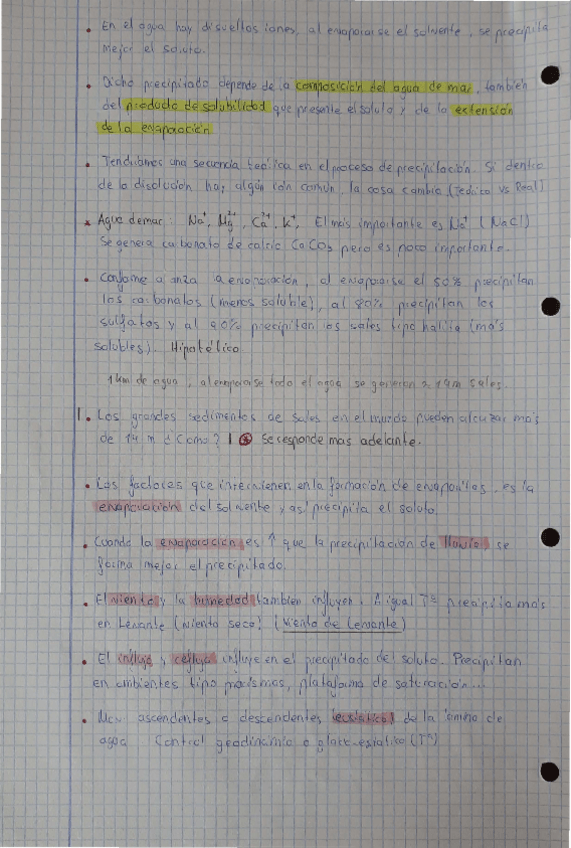 • En el agua hay disueltos iones, al evaporarse el solvente, se precipita
mejor el soluto.
• Dicho precipitado depende de la composición del agua de mar, también
del producto de solubilidad que presente el soluto y de la extensión
de la evaporación
• Tendríamos una secuencia teórica en el proceso de precipitación. Si dentro
de la disolución hay algún ión común, la cosa cambia (Teórico vs Real)
* Agua de mar: Na⁺, Mg²⁺, Ca²⁺, K⁺. El más importante es Na⁺ (NaCl)
Se genera carbonato de calcio CaCO₃ pero es poco importante.
• Conforme avanza la evaporación, al evaporarse el 50% precipitan
los carbonatos (menos soluble), al 80% precipitan los
sulfatos y al 90% precipitan las sales tipo halita (más
solubles). Hipotético
1 km de agua, al evaporarse todo el agua se generan ≈ 14m sales.
1. Los grandes sedimentos de sales en el mundo pueden alcanzar más
de 14 m ¿Como? | Se responde mas adelante.
• Los factores que intervienen en la formación de evaporitas, es la
evaporación del solvente y así precipita el soluto.
• Cuando la evaporación es ↑ que la precipitación de lluvia se
forma mejor el precipitado.
• El viento y la humedad tambien influyen. A igual Tª precipita más
en Levante (viento seco) (viento de Levante)
• El influjo y reflujo influye en el precipitado del soluto. Precipitan
en ambientes tipo marismas, plataforma de saturación...
• Mov ascendentes o descendentes (eustático) de la lámina de
agua. Control geodinámico o glacio-estático (Tª)